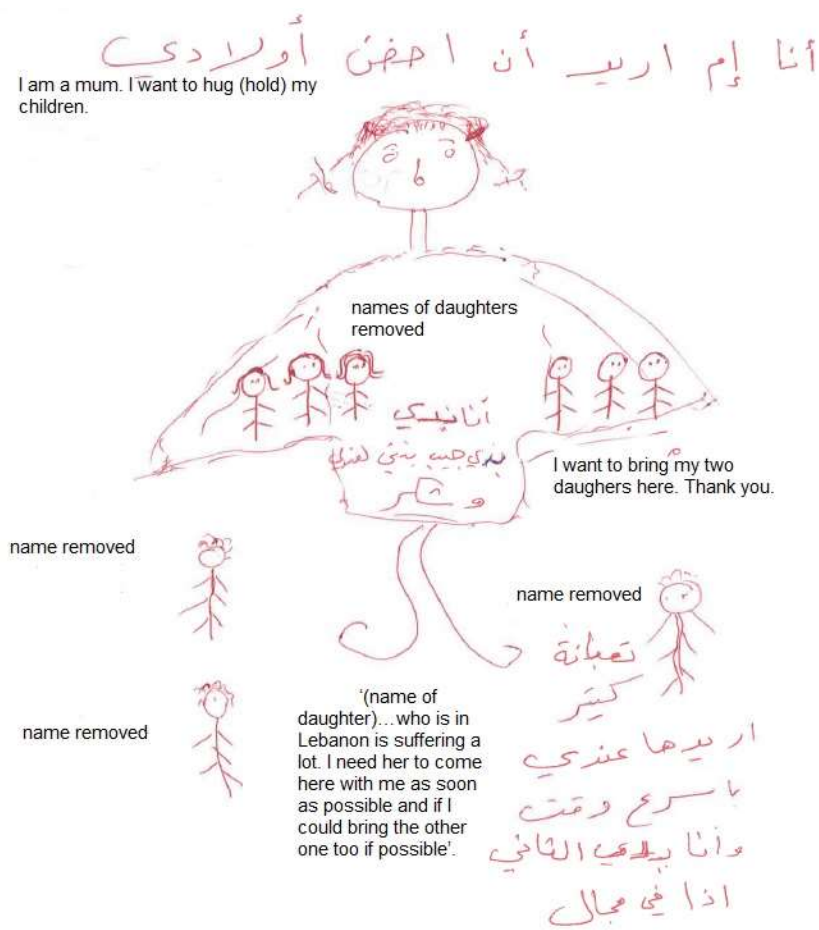 أنا إم اريد أن احضن أولادي
I am a mum. I want to hug (hold) my
children.
names of daughters
removed
أنا بدي
بدي جيب بنتي لعندي
وشكر
I want to bring my two
daughers here. Thank you.
name removed
name removed
name removed
'(name of
daughter)…who is in
Lebanon is suffering a
lot. I need her to come
here with me as soon
as possible and if I
could bring the other
one too if possible'.
تعبانة
كتير
اريدها عندي
باسرع وقت
وأنا بدي الثاني
اذا في مجال